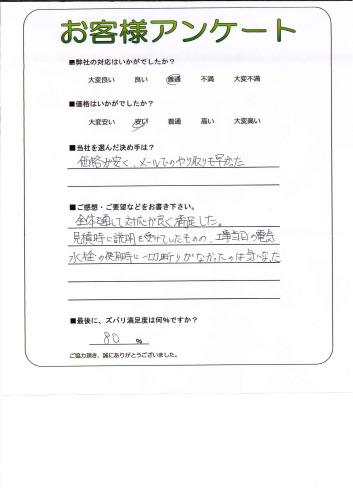 お客様アンケート
■弊社の対応はいかがでしたか？
大変良い 良い 普通 不満 大変不満
■価格はいかがでしたか？
大変安い 安い 普通 高い 大変高い
■当社を選んだ決め手は？
価格が安く、メールでのやり取りも早かった
■ご感想・ご要望などをお書き下さい。
全体通して対応が良く満足した。
見積時に説明を受けていたものの、工事当日の電気
水栓の使用時に一切断りがなかったのは気になった
■最後に、ズバリ満足度は何%ですか？
80 %
ご協力頂き、誠にありがとうございました。